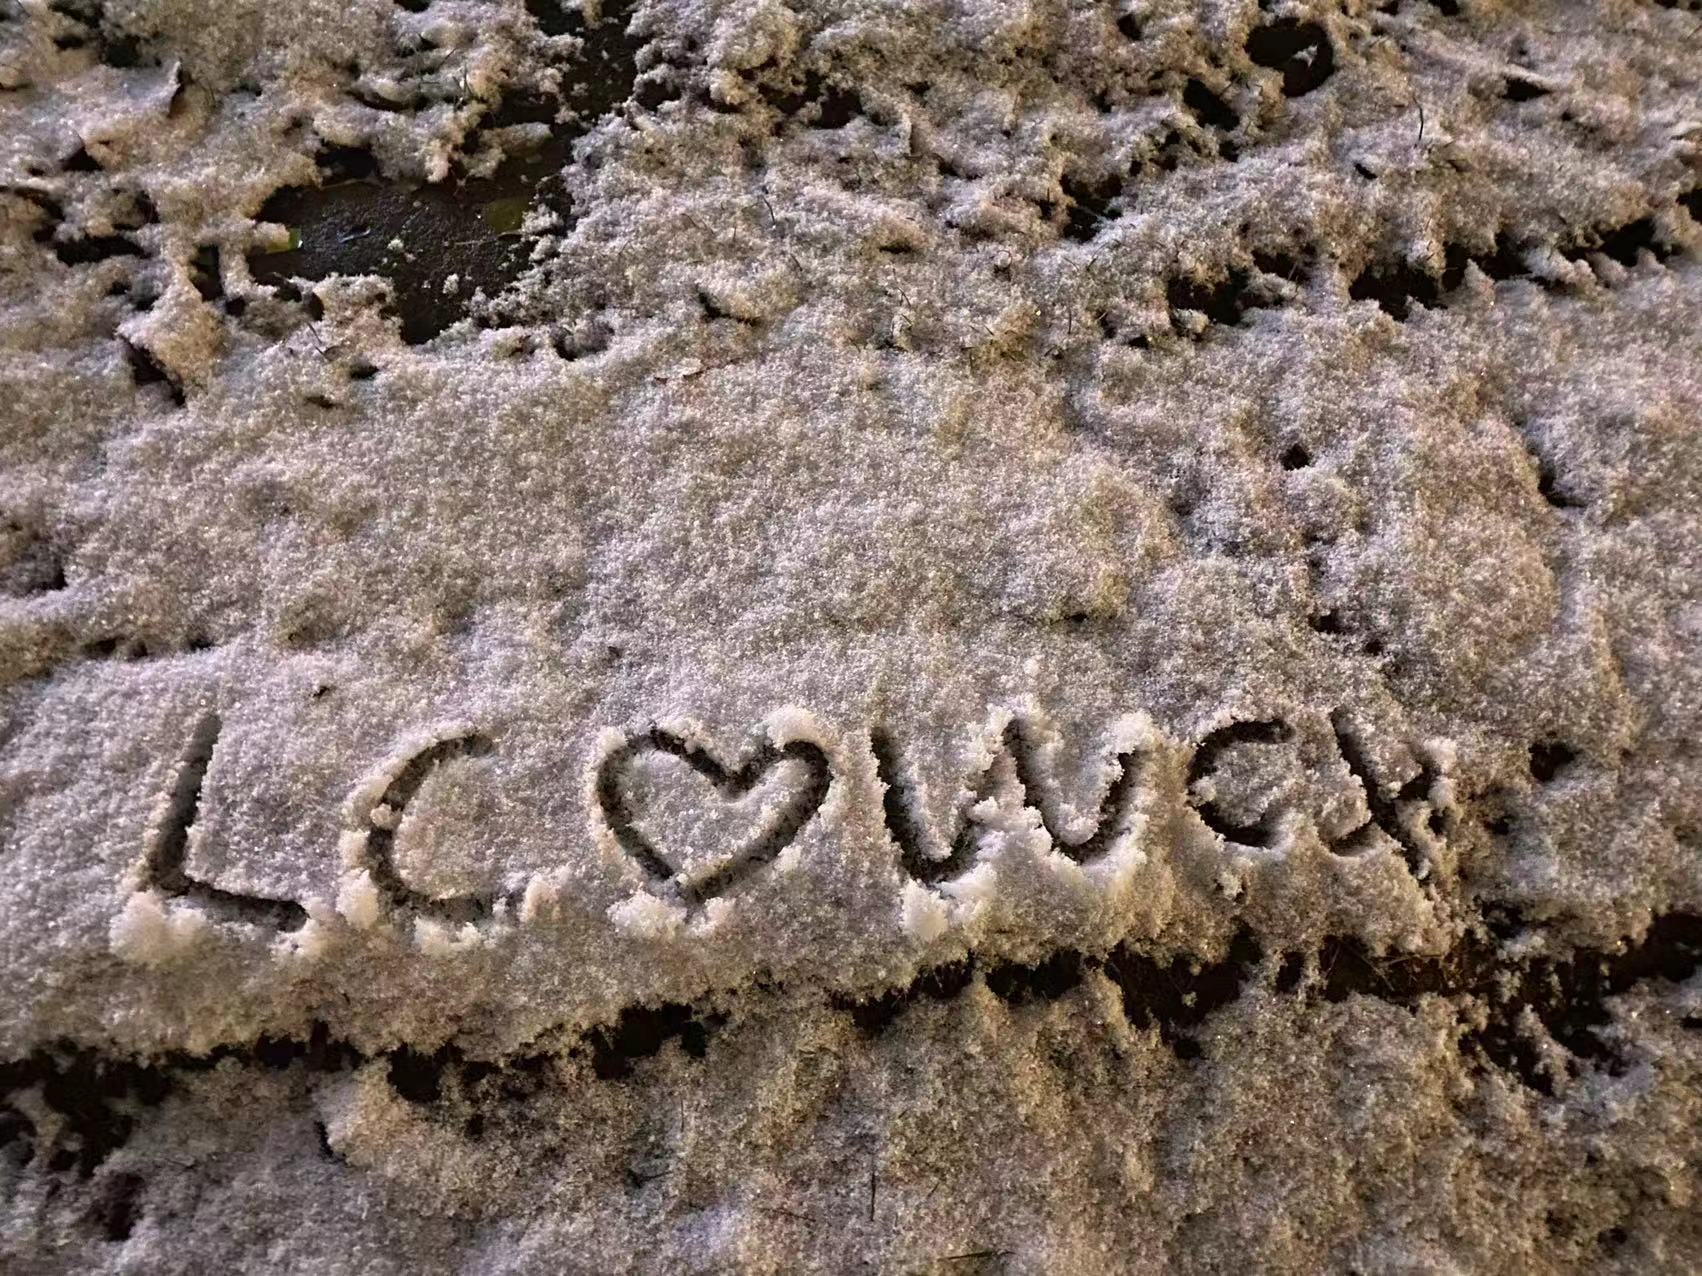 LC♡WCY